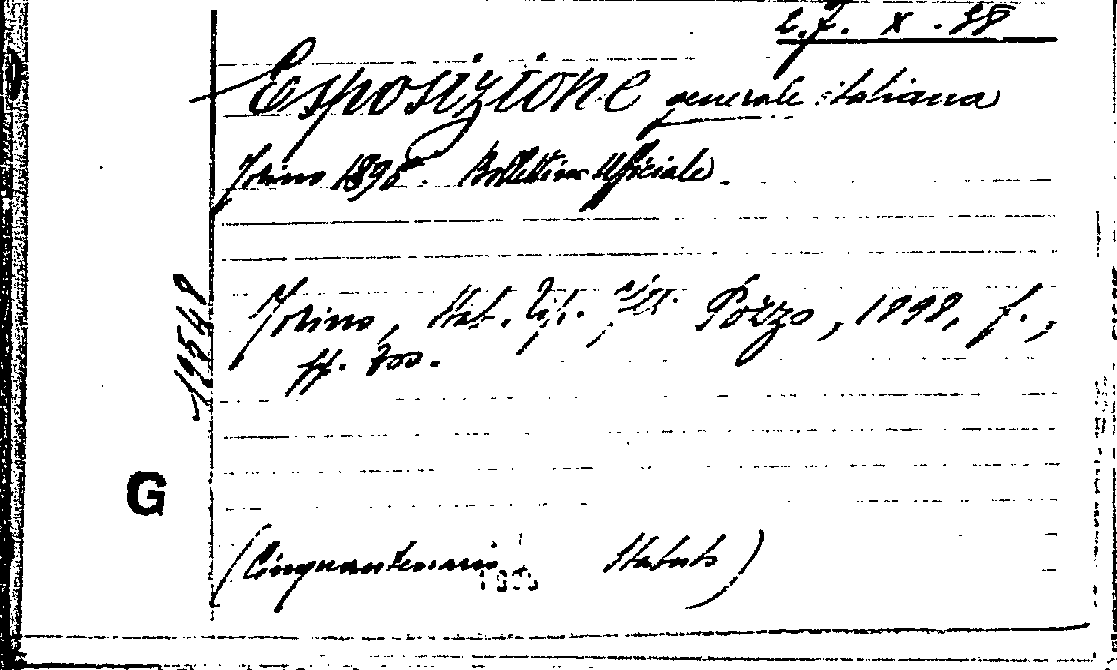 L.7. X. 38
Esposizione generale italiana
Torino 1898. Bollettino Ufficiale.
Torino, Stab. Tip. f.lli Pozzo, 1898, f.,
pp. 200.
19548
G
(Cinquantenario Statuto)